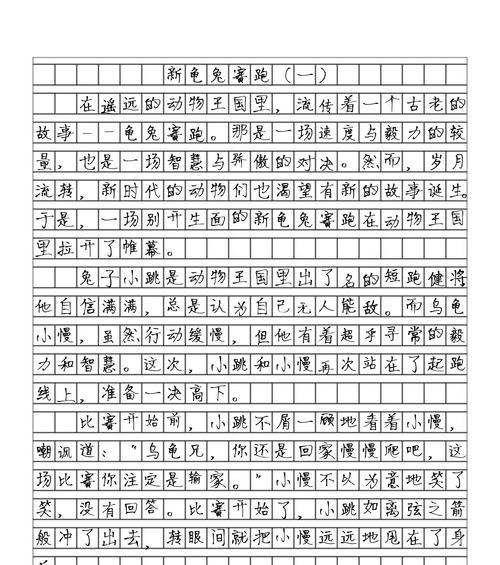 新龟兔赛跑（一）
在遥远的动物王国里，流传着一个古老的
故事--龟兔赛跑。那是一场速度与毅力的较
量，也是一场智慧与骄傲的对决。然而，岁月
流转，新时代的动物们也渴望有新的故事诞生。
于是，一场别开生面的新龟兔赛跑在动物王国
里拉开了帷幕。
兔子小跳是动物王国里出了名的短跑健将
他自信满满，总是认为自己无人能敌。而乌龟
小慢，虽然行动缓慢，但他有着超乎寻常的毅
力和智慧。这次，小跳和小慢再次站在了起跑
线上，准备一决高下。
比赛开始前，小跳不屑一顾地看着小慢，
嘲讽道："乌龟兄，你还是回家慢慢爬吧，这
场比赛你注定是输家。"小慢不以为意地笑了
笑，没有回答。比赛开始了，小跳如离弦之箭
般冲了出去，转眼间就把小慢远远地甩在了身